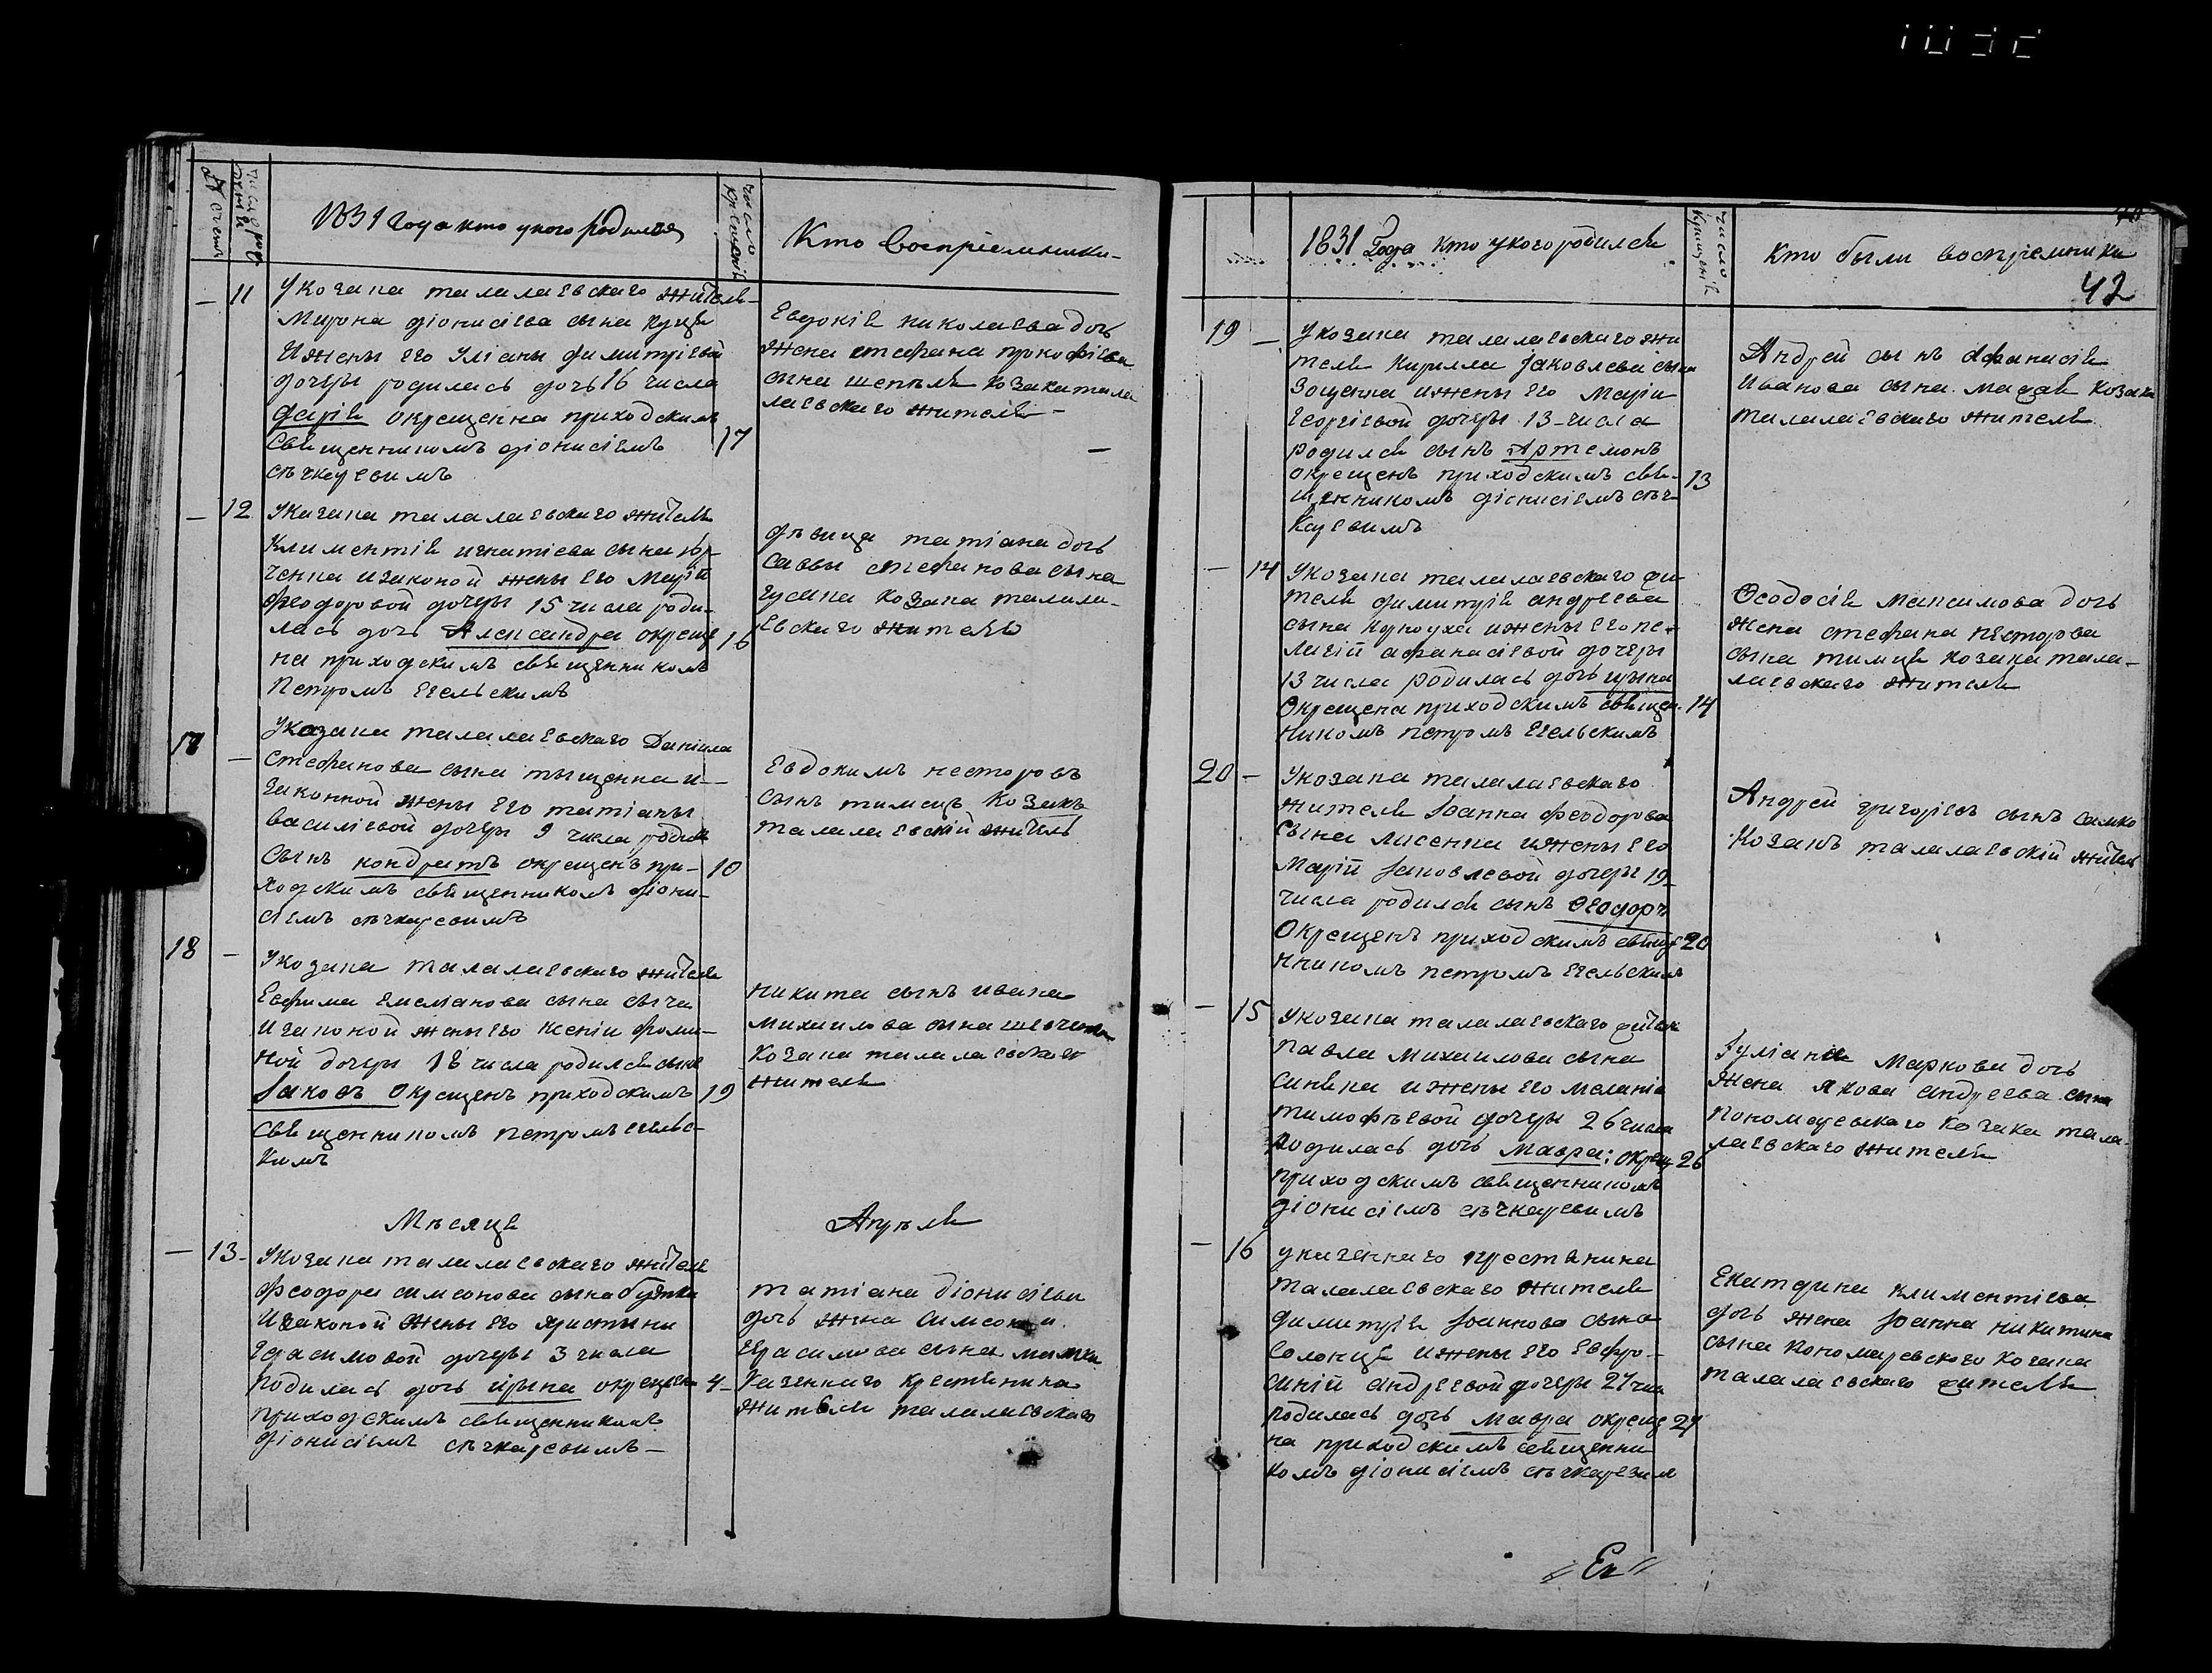 1831 года кто укого родился
число крещенія
Кто Воспріемники
11
Укозака талалаевскаго жителя
Мирона діонисіева сына куця
Ижены его Уліаны димитріевой
дочеры родилась дочь 16 числа
дарія окрещенна приходскимъ
Священникомъ діонисіемъ
сѣчкаревимъ
17
Евдокія николаева дочь
жена стефана прокофіева
сына шепеля козака тала
лаевскаго жителя
12
Укозака талалаевскаго жителя
Климентія игнатіева сына
ченка изаконой жены его Маріи
феодоровой дочеры 15 числа роди-
лась дочь Александра окреще
на приходскимъ священникомъ
Петромъ Егельскимъ
16
дѣвица татіана дочь
Саввы стефанова сына
гусака козака талала-
евскаго жителя
17
Укозака талалаевскаго Даніила
Стефанова сына тыщенка и-
законной жены его татіаны
василіевой дочеры 9 числа родился
сынъ кондратъ окрещенъ при-
ходскимъ священникомъ діони-
сіемъ сѣчкаревимъ
10
Евдокимъ несторовъ
сынъ тимецъ козакъ
талалаевскій житель
18
Укозака талалаевскаго жителя
Евфима Емеліанова сына сыча
Изаконой жены его ксеніи фоми-
ной дочеры 18 числа родился сынъ
Іаковъ Окрещенъ приходскимъ
священникомъ петромъ егельс-
кимъ
19
никита сынъ ивана
михаилова сына шевченка
козака талалаевскаго
жителя
Мѣсяцъ
Апрѣля
13
Укозака талалаевскаго жителя
феодора симеонова сына
Изаконой жены его христыны
Герасимовой дочеры 3 числа
родилась дочь ирына окрещена
приходскимъ священникомъ
діонисіемъ сѣчкаревимъ
4
татіана діонисіева
дочь жена симеона
Герасимова сына
казеннаго крестянина
жителя талалаевскаго
1831 Года кто укого родился
число крещенія
Кто были воспріемники
42
19
Укозака талалаевскаго жи
теля Кирилла Іаковлева сына
Зощенка ижены его Маріи
Георгіевой дочеры 13 числа
родился сынъ Артемонъ
окрещенъ приходскимъ свя-
щенникомъ діонисіемъ сѣч-
каревимъ
13
Андрей сынъ Афанасія
Иванова сына козака
талалаевскаго жителя
14
Укозака талалаевскаго жи
теля димитрія андреева
сына корноуха ижены его пе-
лагіи афанасіевой дочеры
13 числа родилась дочь ирына
Окрещена приходскимъ священ
никомъ петромъ Егельскимъ
14
Феодосія максимова дочь
жена стефана несторова
сына тимця козака тала-
лаевскаго жителя
20
Укозака талалаевскаго
жителя Іоанна феодорова
сына лисенка ижены его
Маріи Іаковлевой дочеры 19
числа родился сынъ Феодоръ
Окрещенъ приходскимъ священ
нникомъ петромъ Егельскимъ
20
Андрей григоріевъ сынъ самко
Козакъ талалаевскій житель
15
Укозака талалаевскаго жителя
павла михаилова сына
синяка ижены его меланіи
тимофѣевой дочеры 26 числа
родилась дочь мавра: окрещ
приходскимъ священникомъ
діонисіемъ сѣчкаревимъ
26
Іуліанія маркова дочь
жена якова андреева сына
пономаревскаго козака тала-
лаевскаго жителя
16
указеннаго крестянина
талалаевскаго жителя
димитрія Іоаннова сына
Солонця ижены его Евфро-
синіи андреевой дочеры 27 числ
родилась дочь мавра окреще
на приходскимъ священни
комъ діонисіемъ сѣчкаревим
27
Екатерина климентіева
дочь жена Іоанна никитина
сына пономаревского козака
талалаевскаго жителя